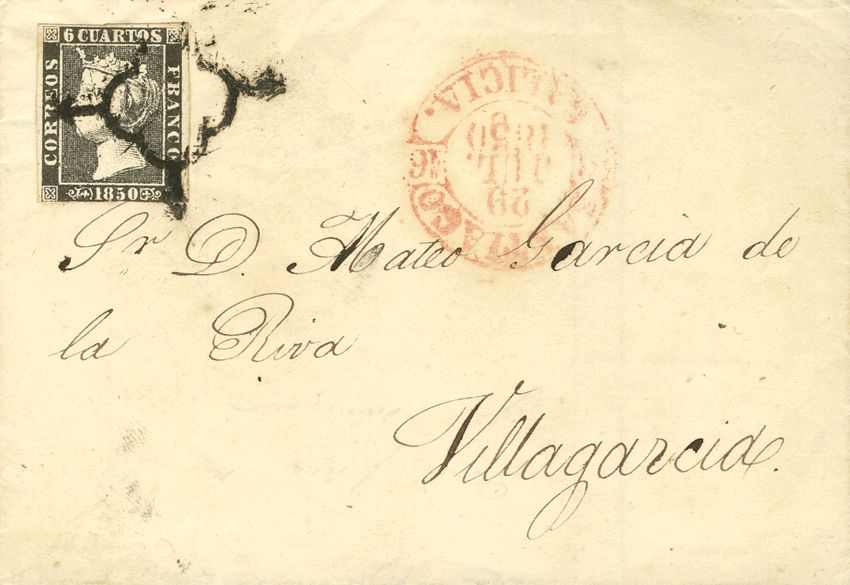 6 CUARTOS
CORREOS
FRANCO
1850
SANTIAGO
29
JUL.
1850
GALICIA.
Sr D. Mateo Garcia de
la Riva
Villagarcia.